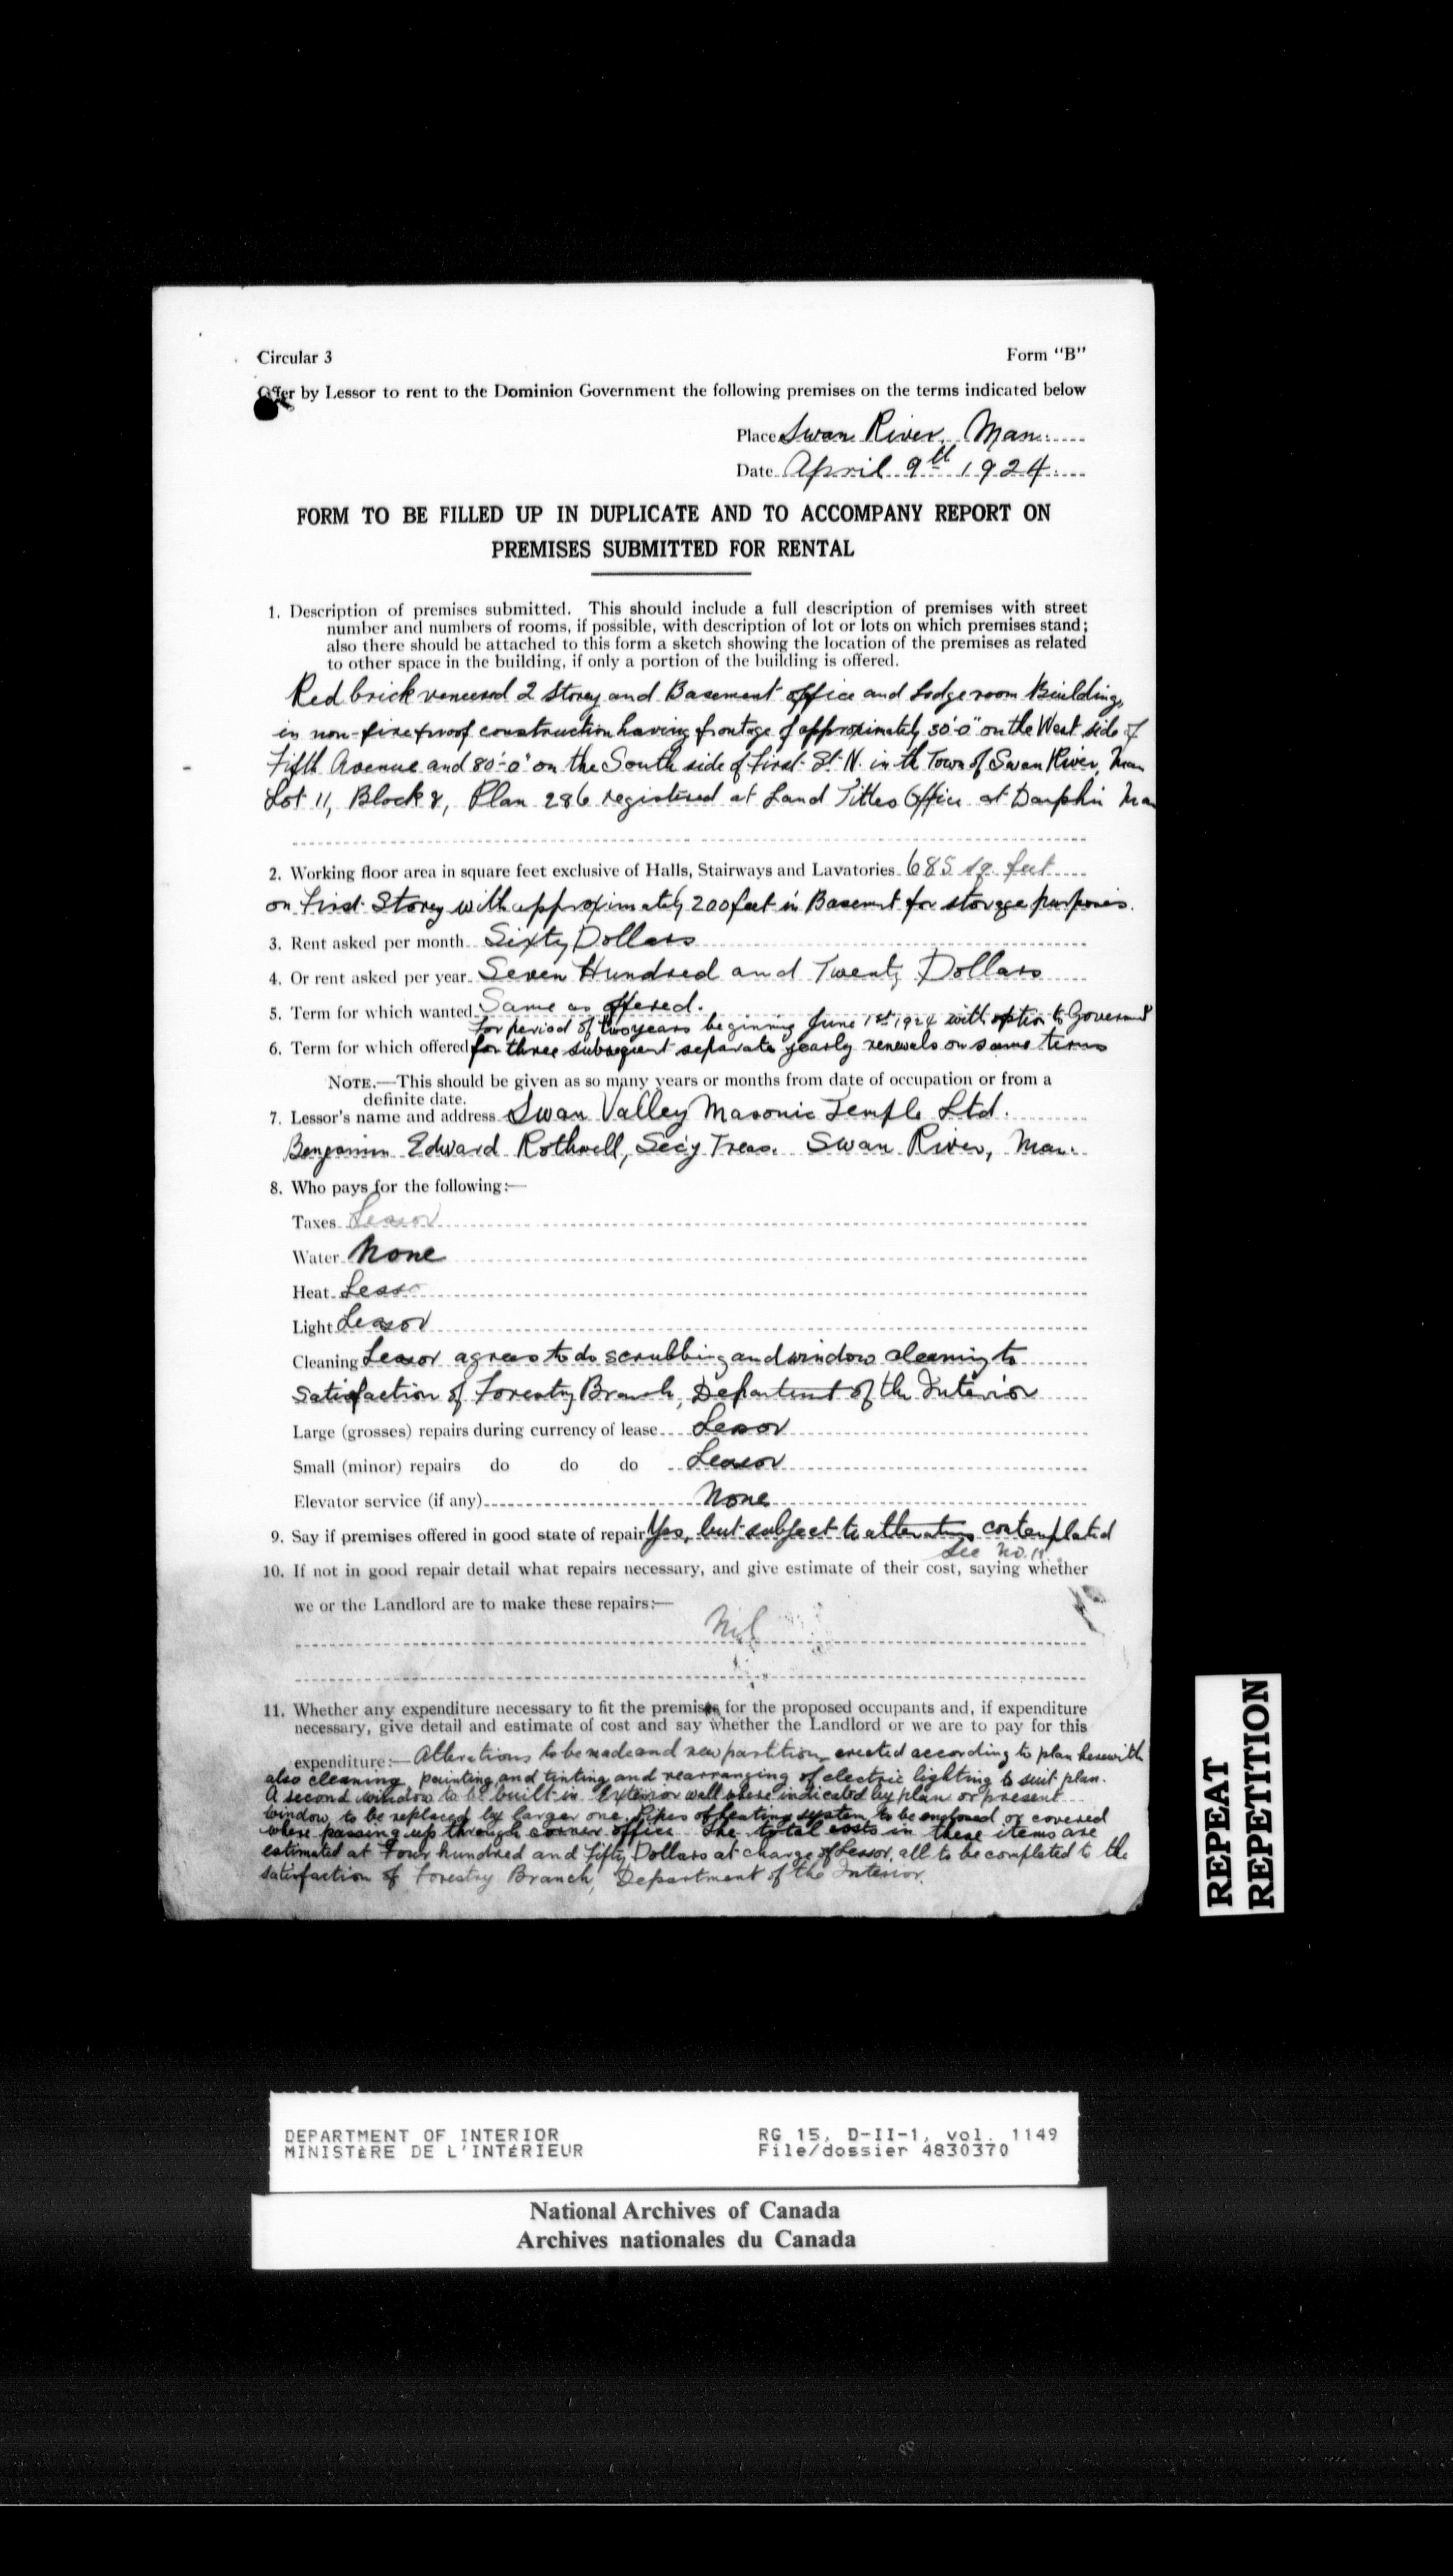 Circular 3
Form "B"
Offer by Lessor to rent to the Dominion Government the following premises on the terms indicated below
Place Swan River, Man.
Date April 9th 1924.
FORM TO BE FILLED UP IN DUPLICATE AND TO ACCOMPANY REPORT ON
PREMISES SUBMITTED FOR RENTAL
1. Description of premises submitted. This should include a full description of premises with street
number and numbers of rooms, if possible, with description of lot or lots on which premises stand;
also there should be attached to this form a sketch showing the location of the premises as related
to other space in the building, if only a portion of the building is offered.
Red brick veneered 2 Storey and Basement office and Lodge room Building,
in non-fireproof construction having frontage of approximately 30'-0" on the West side of
Fifth Avenue and 80'-0" on the South side of First St. N. in the Town of Swan River, Man
Lot 11, Block 8, Plan 286 registered at Land Titles Office at Dauphin Man
2. Working floor area in square feet exclusive of Halls, Stairways and Lavatories 685 sq. feet
on First Storey with approximately 200 feet in Basement for storage purposes.
3. Rent asked per month Sixty Dollars
4. Or rent asked per year Seven Hundred and Twenty Dollars
5. Term for which wanted Same as offered.
For period of two years beginning June 1st 1924 with option to Government
6. Term for which offered for three subsequent separate yearly renewals on same terms
NOTE.—This should be given as so many years or months from date of occupation or from a
definite date.
7. Lessor's name and address Swan Valley Masonic Temple Ltd.
Benjamin Edward Rothwell, Sec'y Treas. Swan River, Man.
8. Who pays for the following:—
Taxes Lessor
Water None
Heat Lesso
Light Lessor
Cleaning Lessor agrees to do scrubbing and window cleaning to
satisfaction of Forestry Branch, Department of the Interior
Large (grosses) repairs during currency of lease Lessor
Small (minor) repairs do do do Lessor
Elevator service (if any) None
9. Say if premises offered in good state of repair Yes, but subject to alterations contemplated
See No. 11.
10. If not in good repair detail what repairs necessary, and give estimate of their cost, saying whether
we or the Landlord are to make these repairs:—
Nil
11. Whether any expenditure necessary to fit the premises for the proposed occupants and, if expenditure
necessary, give detail and estimate of cost and say whether the Landlord or we are to pay for this
expenditure:— Alterations to be made and new partition erected according to plan herewith
also cleaning, painting and tinting and rearranging of electric lighting to suit plan.
A second window to be built in exterior wall where indicated by plan or present
window to be replaced by larger one. Pipes of heating system to be enclosed or covered
where passing up through corner office. The total costs in these items are
estimated at Four hundred and Fifty Dollars at charge of Lessor, all to be completed to the
satisfaction of Forestry Branch, Department of the Interior.
REPEAT
REPETITION
DEPARTMENT OF INTERIOR
MINISTÈRE DE L'INTÉRIEUR
RG 15, D-II-1, vol. 1149
File/dossier 4830370
National Archives of Canada
Archives nationales du Canada